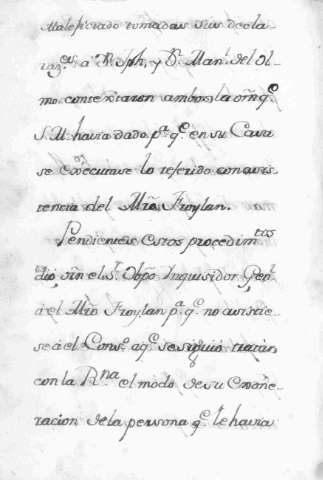 Maleficiado tomadas sus decla-
raz.es a D.n Joseph, y D.n Man.l del Ol-
mo contextaron ambos la orn q.e
S.M. havia dado p.a q.e en su Casa
se executase lo referido con avis-
tencia del Mro. Froylan.
Pendientes estos procedim.tos
dio, sin el S.r Obpo Inquisidor Gen.l
á el Mro Froylan p.a q.e no asistie-
se á el Cons.o a q.e se siguio tratar
con la R.na el modo de su Exone-
racion de la persona q.e le havia